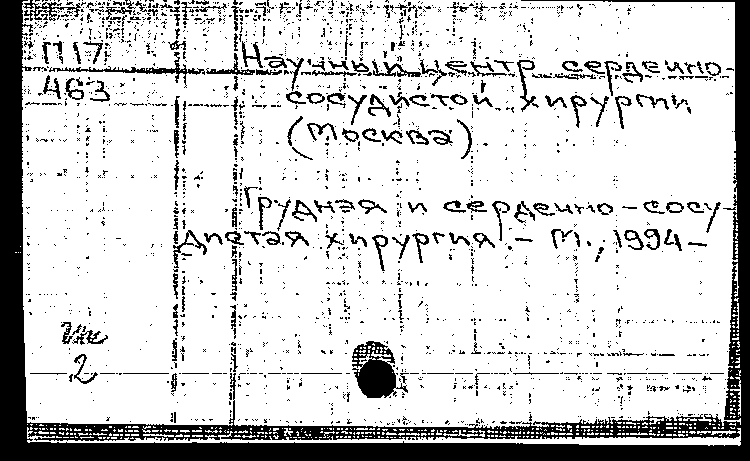 П17
463
Научный центр сердечно-
сосудистой хирургии
(Москва).
Грудная и сердечно-сосу-
дистая хирургия. - М., 1994-
2